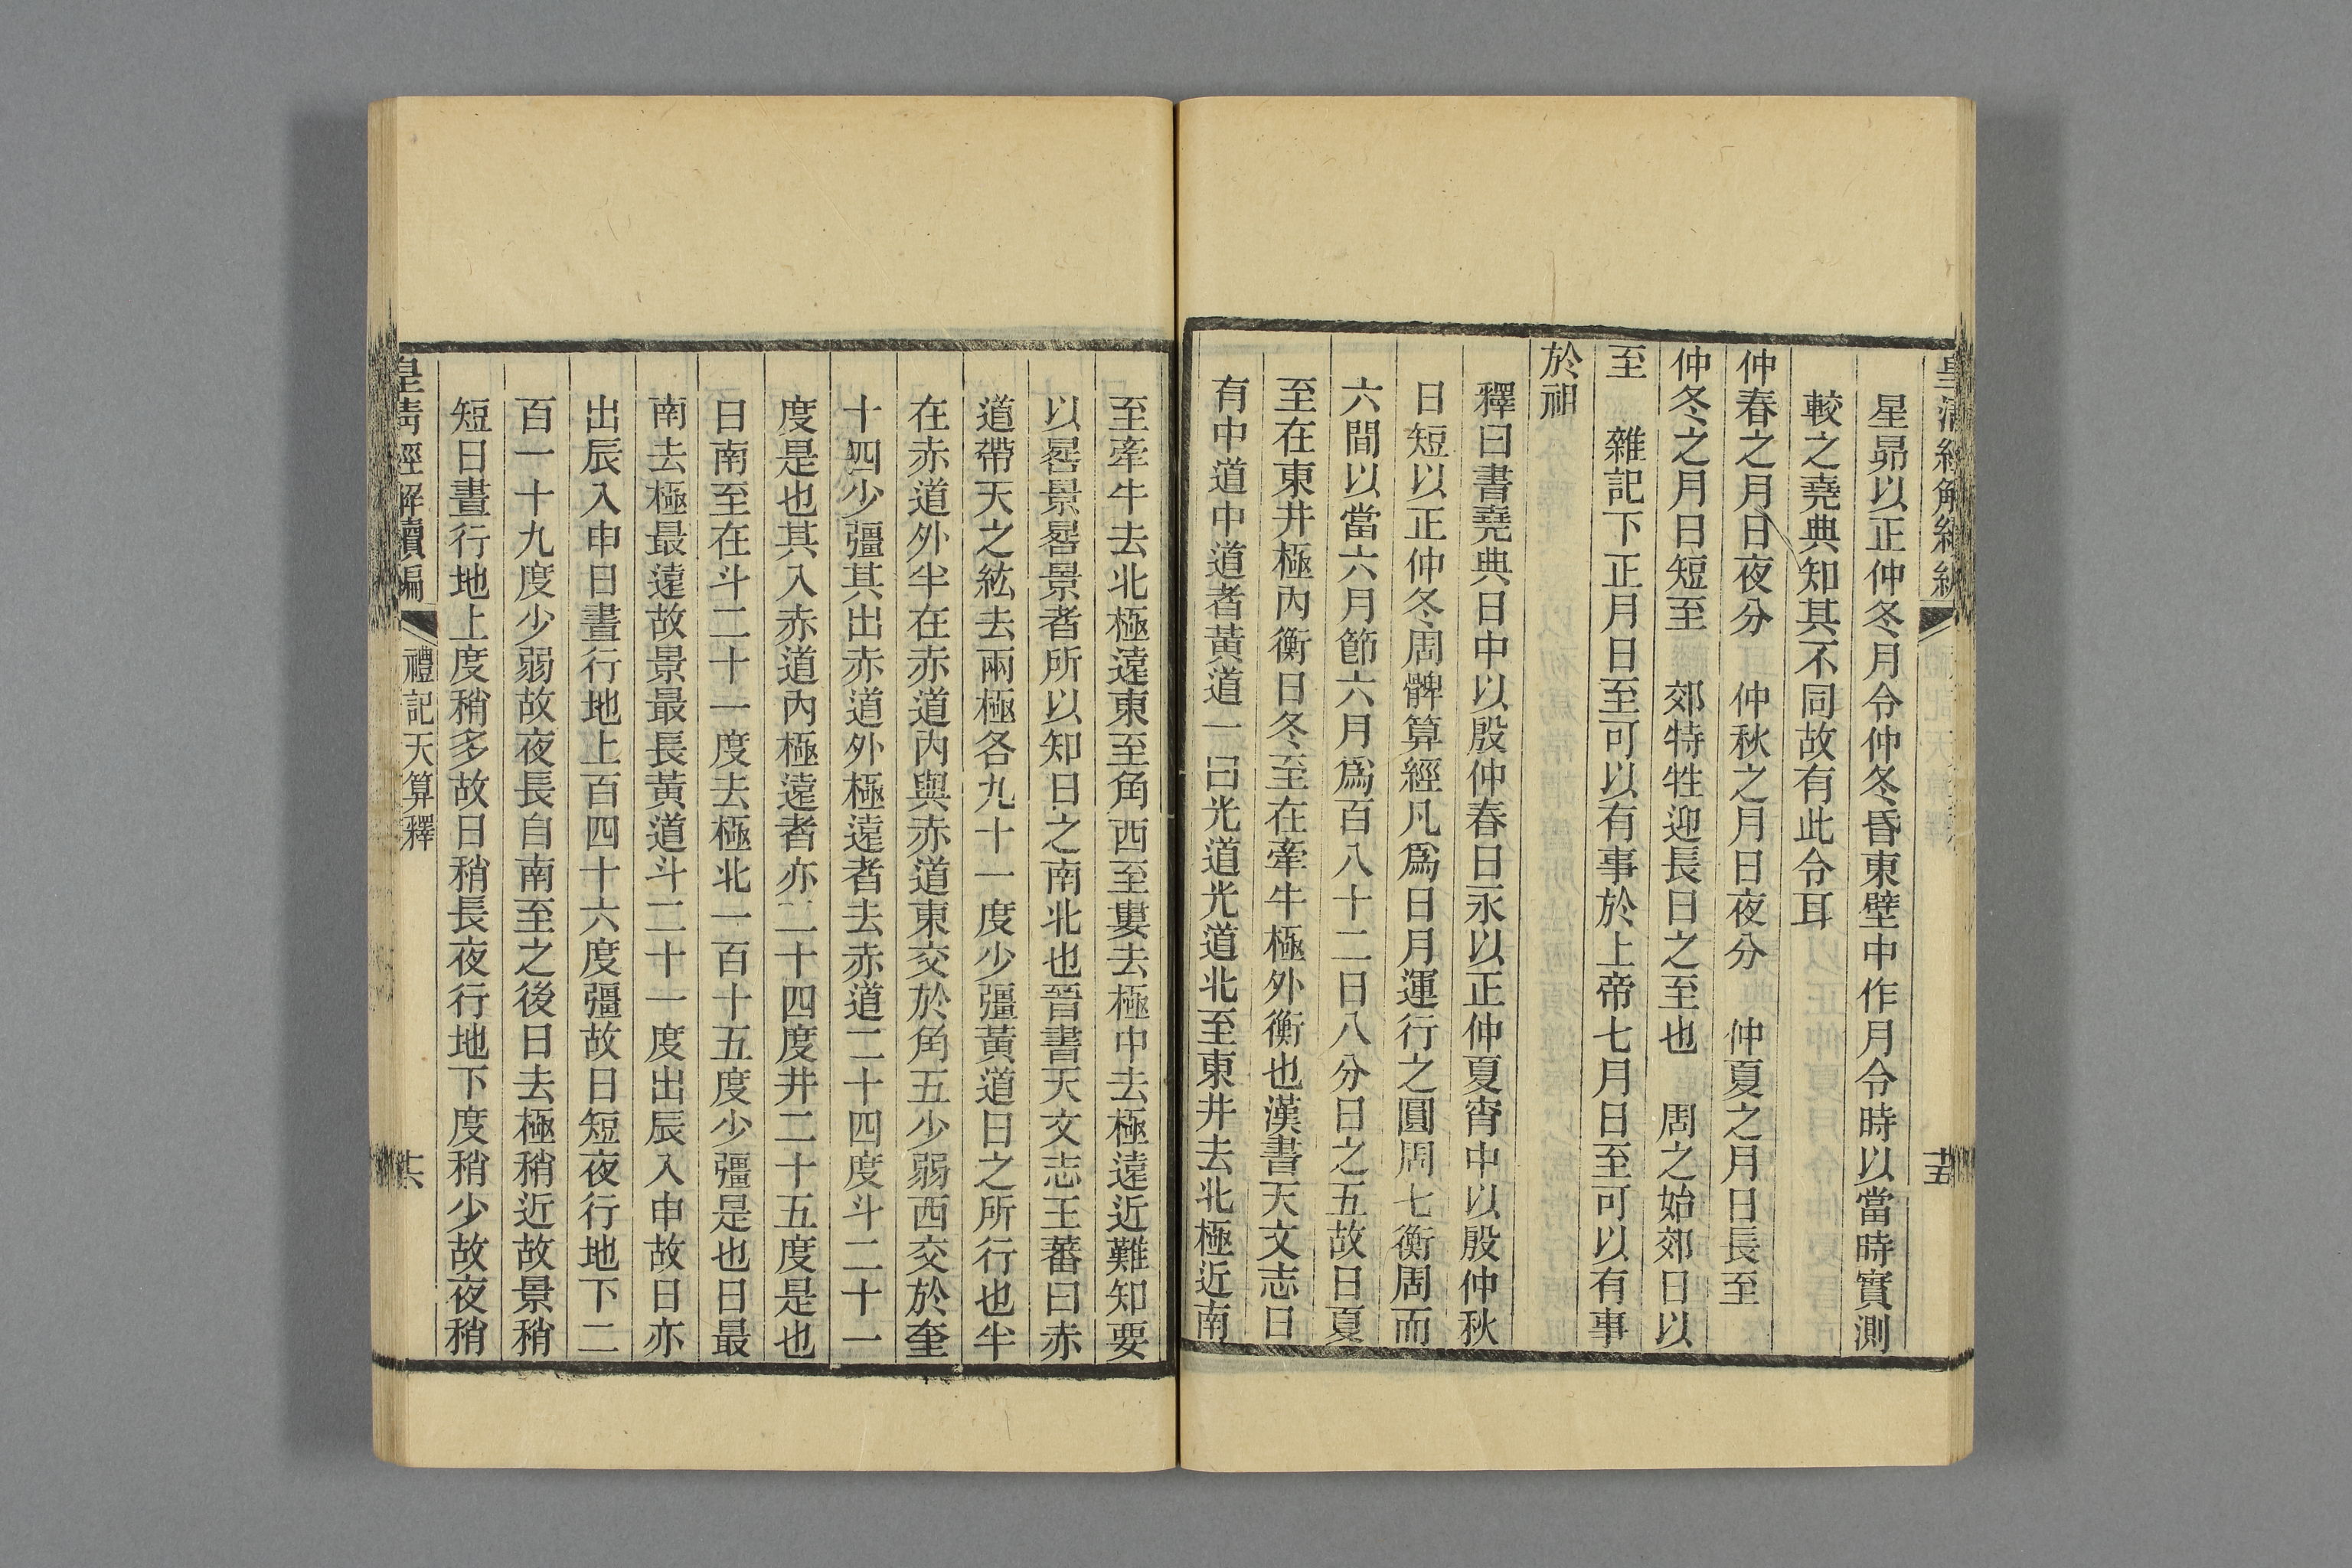 星昴以正仲冬月令仲冬昏東壁中作月令時以當時實測
較之堯典知其不同故有此令耳
仲春之月日夜分　仲秋之月日夜分　仲夏之月日長至
仲冬之月日短至　郊特牲迎長日之至也　周之始郊日以
至　雜記下正月日至可以有事於上帝七月日至可以有事
於祖
釋曰書堯典日中以殷仲春日永以正仲夏宵中以殷仲秋
日短以正仲冬周髀算經凡爲日月運行之圓周七衡周而
六間以當六月節六月爲百八十二日八分日之五故日夏
至在東井極內衡日冬至在牽牛極外衡也漢書天文志曰
有中道中道者黃道一曰光道光道北至東井去北極近南
至牽牛去北極遠東至角西至婁去極中去極遠近難知要
以晷景晷景者所以知日之南北也晉書天文志王蕃曰赤
道帶天之紘去兩極各九十一度少彊黃道日之所行也半
在赤道外半在赤道內與赤道東交於角五少弱西交於奎
十四少彊其出赤道外極遠者去赤道二十四度斗二十一
度是也其入赤道內極遠者亦二十四度井二十五度是也
日南至在斗二十一度去極北一百十五度少彊是也日最
南去極最遠故景最長黃道斗二十一度出辰入申故日亦
出辰入申日晝行地上百四十六度彊故日短夜行地下二
百一十九度少弱故夜長自南至之後日去極稍近故景稍
短日晝行地上度稍多故日稍長夜行地下度稍少故夜稍
皇清經解續編
禮記天算釋